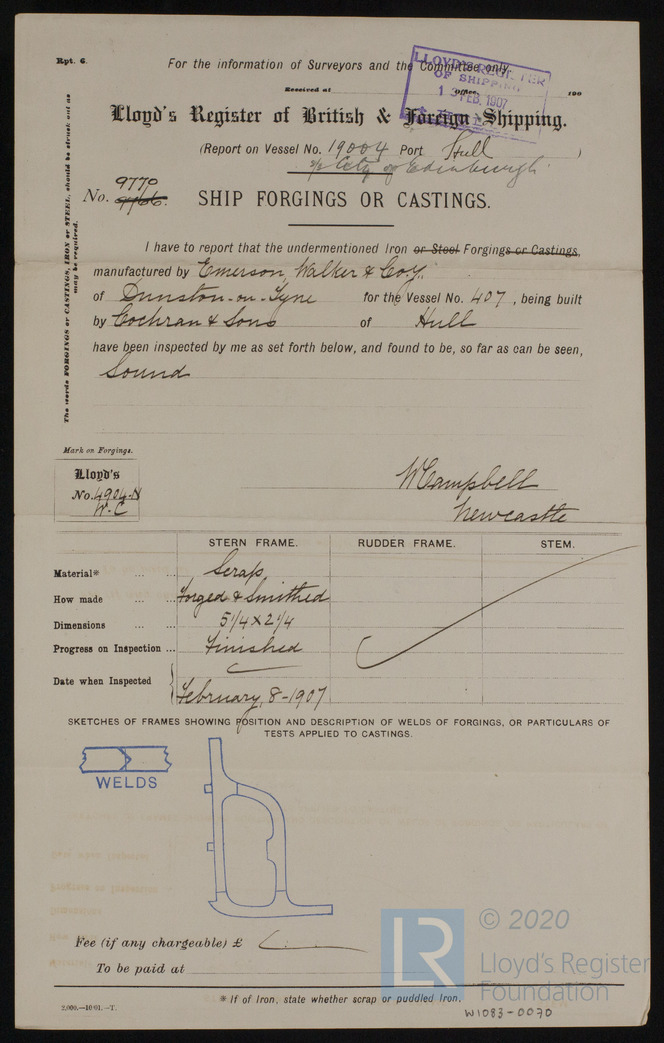 Rpt. 6.
For the information of Surveyors and the Committee only.
LLOYD'S REGISTER
OF SHIPPING
13 FEB. 1907
Received at Office, 190
Lloyd's Register of British & Foreign Shipping.
(Report on Vessel No. 19004 Port Hull )
s/s City of Edinburgh
9770
No. 9766.
SHIP FORGINGS OR CASTINGS.
The words FORGINGS or CASTINGS, IRON or STEEL, should be struck out as may be required.
I have to report that the undermentioned Iron or Steel Forgings or Castings,
manufactured by Emerson, Walker & Coy.
of Dunston-on-Tyne for the Vessel No. 407, being built
by Cochran & Sons of Hull
have been inspected by me as set forth below, and found to be, so far as can be seen,
Sound
Mark on Forgings.
Lloyd's
No. 4904-N
W.C
W Campbell
Newcastle
STERN FRAME. RUDDER FRAME. STEM.
Material* ... ... Scrap
How made ... ... Forged & Smithed
Dimensions ... ... 5 1/4 x 2 1/4
Progress on Inspection ... Finished
Date when Inspected February, 8-1907
SKETCHES OF FRAMES SHOWING POSITION AND DESCRIPTION OF WELDS OF FORGINGS, OR PARTICULARS OF
TESTS APPLIED TO CASTINGS.
WELDS
Fee (if any chargeable) £
To be paid at
* If of Iron, state whether scrap or puddled Iron.
2,000.—10·01.—T.
W1083-0070
LR
© 2020
Lloyd's Register
Foundation